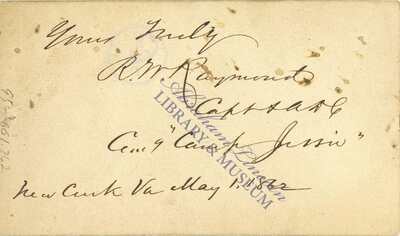 Yours Truly
R. W. Raymond
Capt & ADC
Com'g "Camp Jessie"
New Creek Va May 1. 1862
Abraham Lincoln
LIBRARY & MUSEUM